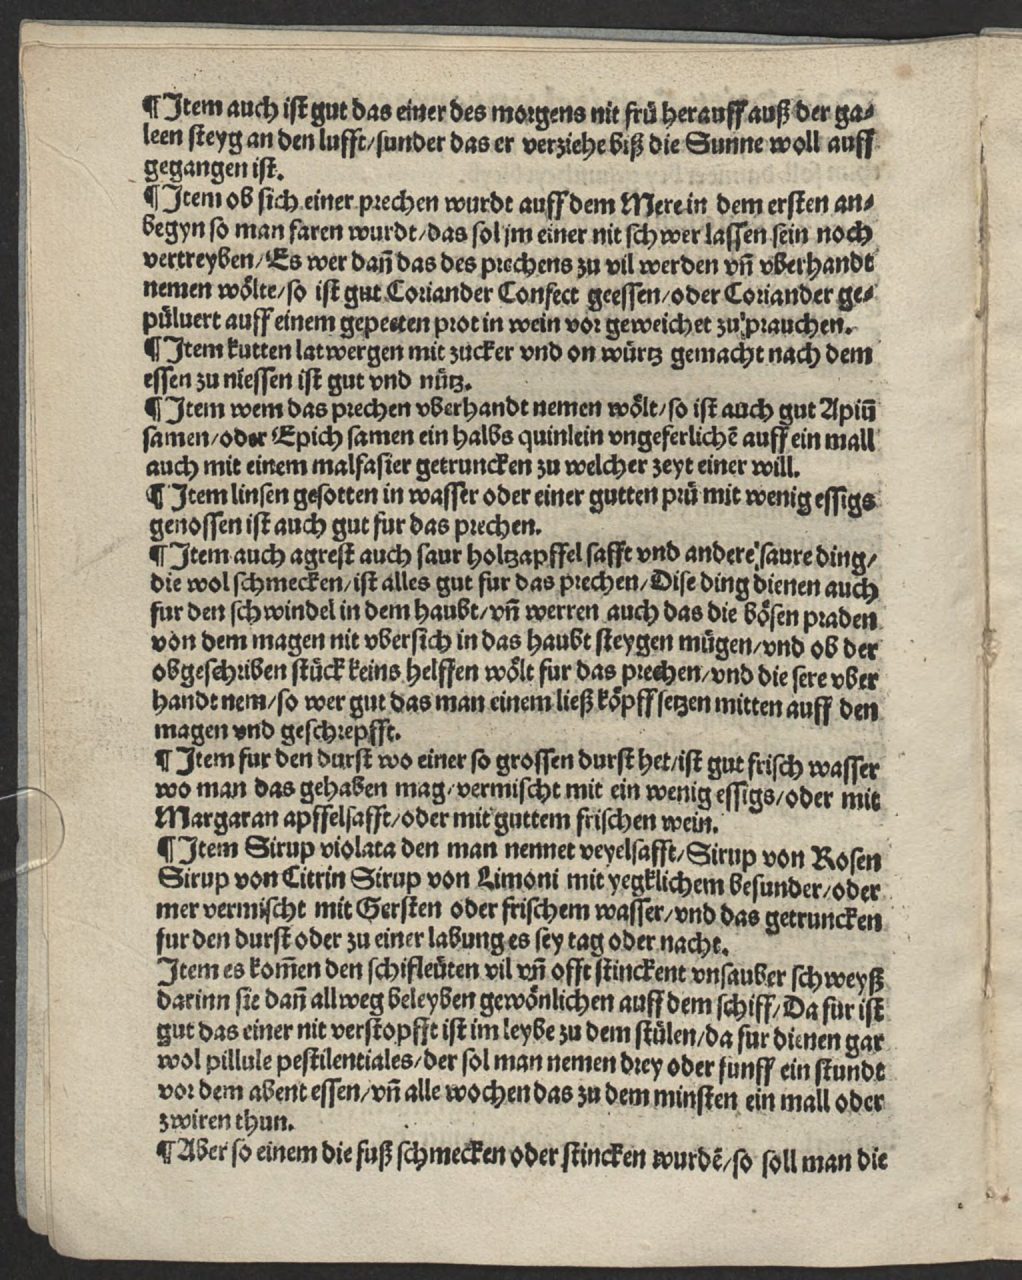 ¶ Jtem auch ist gut das einer des morgens nit frü herauff auß der ga⸗
leen steyg an den lufft/sunder das er verziehe biß die Sunne woll auff
gegangen ist.
¶ Jtem ob sich einer prechen wurdt auff dem Mere in dem ersten an⸗
begyn so man faren wurdt/das sol jm einer nit schwer lassen sein noch
vertreyben/Es wer dañ das des prechens zu vil werden vñ vberhandt
nemen wölte/so ist gut Coriander Confect geessen/oder Coriander ge⸗
pülvert auff einem gepeeten prot in wein vor geweichet zu prauchen.
¶ Jtem kutten latwergen mit zucker vnd on würtz gemacht nach dem
essen zu niessen ist gut vnd nütz.
¶ Jtem wem das prechen vberhandt nemen wölt/so ist auch gut Apiū
samen/oder Epich samen ein halbs quinlein vngeferlichē auff ein mall
auch mit einem malfasier getruncken zu welcher zeyt einer will.
¶ Jtem linsen gesotten in wasser oder einer gutten prü mit wenig essigs
genossen ist auch gut fur das prechen.
¶ Jtem auch agrest auch saur holtzapffel safft vnd andere saure ding/
die wol schmecken/ist alles gut fur das prechen/Dise ding dienen auch
fur den schwindel in dem haubt/vñ werren auch das die bösen praden
von dem magen nit vbersich in das haubt steygen mügen/vnd ob der
obgeschriben stück keins helffen wölt fur das prechen/vnd die sere vber
handt nem/so wer gut das man einem ließ köpff setzen mitten auff den
magen vnd geschrepfft.
¶ Jtem fur den durst wo einer so grossen durst het/ist gut frisch wasser
wo man das gehaben mag/vermischt mit ein wenig essigs/oder mit
Margaran apffelsafft/oder mit guttem frischen wein.
¶ Jtem Sirup violata den man nennet veyelsafft/Sirup von Rosen
Sirup von Citrin Sirup von Limoni mit yegklichem besunder/oder
mer vermischt mit Gersten oder frischem wasser/vnd das getruncken
fur den durst oder zu einer labung es sey tag oder nacht.
Jtem es kom̄en den schifleüten vil vñ offt stinckent vnsauber schweyß
darinn sie dañ allweg beleyben gewönlichen auff dem schiff/Da für ist
gut das einer nit verstopfft ist im leybe zu dem stülen/da fur dienen gar
wol pillule pestilentiales/der sol man nemen drey oder funff ein stundt
vor dem abent essen/vñ alle wochen das zu dem minsten ein mall oder
zwiren thun.
¶ Aber so einem die fuß schmecken oder stincken wurdē/so soll man die